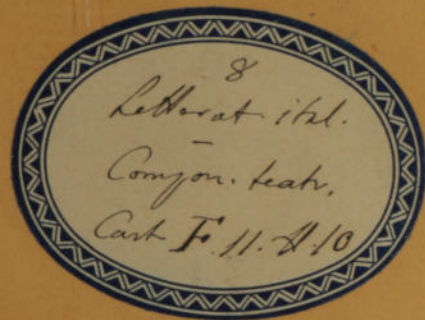 8
Letterat. ital.
–
Compon. teatr.
Cart F. 11. N. 10